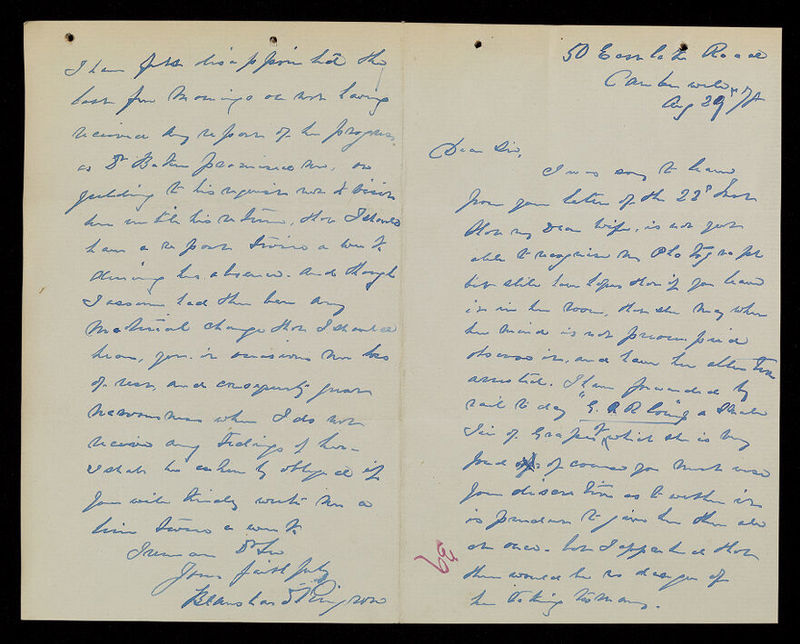 50 East lake Road
Camberwell
Aug 29
Dear Sir,
I was sorry to learn
from your letter of the 22d Inst
that my Dear Wife, is not yet
able to recognise my Photograph
but still have hopes that if you leave
it in her room, that she may when
her mind is not preoccupied
observe it, and have her attention
arrested. I have forwarded by
rail to day "G. R
Tin of Grapes which she is very
fond of, of course you must use
your discretion as to wether it
is prudent to give her them all
at once. but I
there would be no danger of
her taking to many.
69
I have felt disappointed the
last few mornings at not having
received any report of her progress,
as Dr Baker promised me, on
yielding to his not to visit
her until his return, that I should
have a report twice a week
during his absence. And though
I assume had there been any
material change that I should
hear, yet it occasions me loss
of rest, and consequently great
nervousness when I do not
receive any tidings of her-
I shall be extremely obliged if
you will kindly write me a
line twice a week
I remain Dr Sir
Yours faithfully